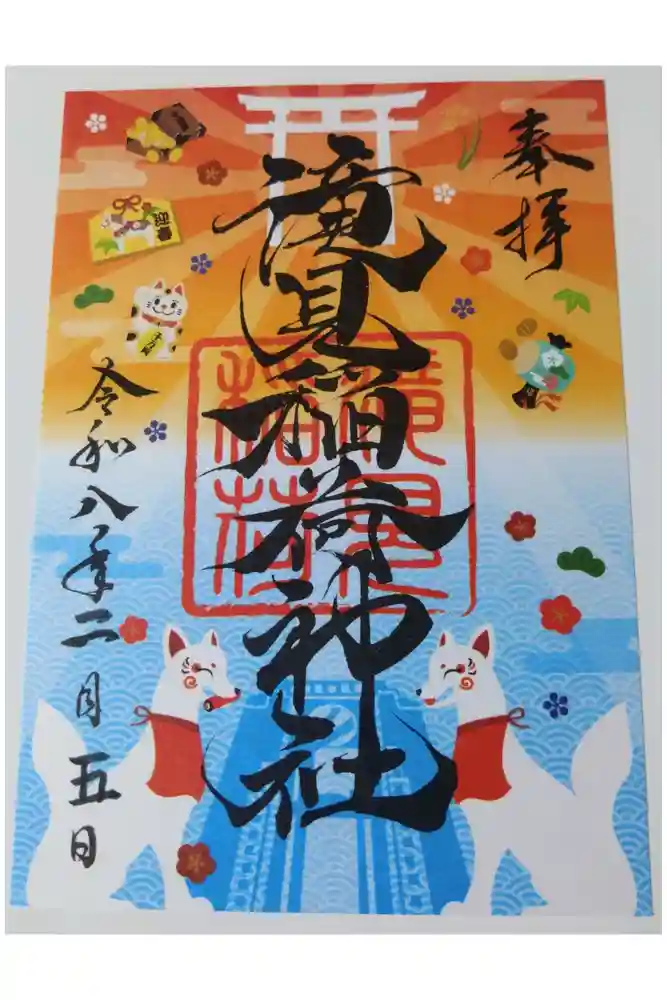 奉拝
滝見稲荷神社
令和八年二月五日
迎春